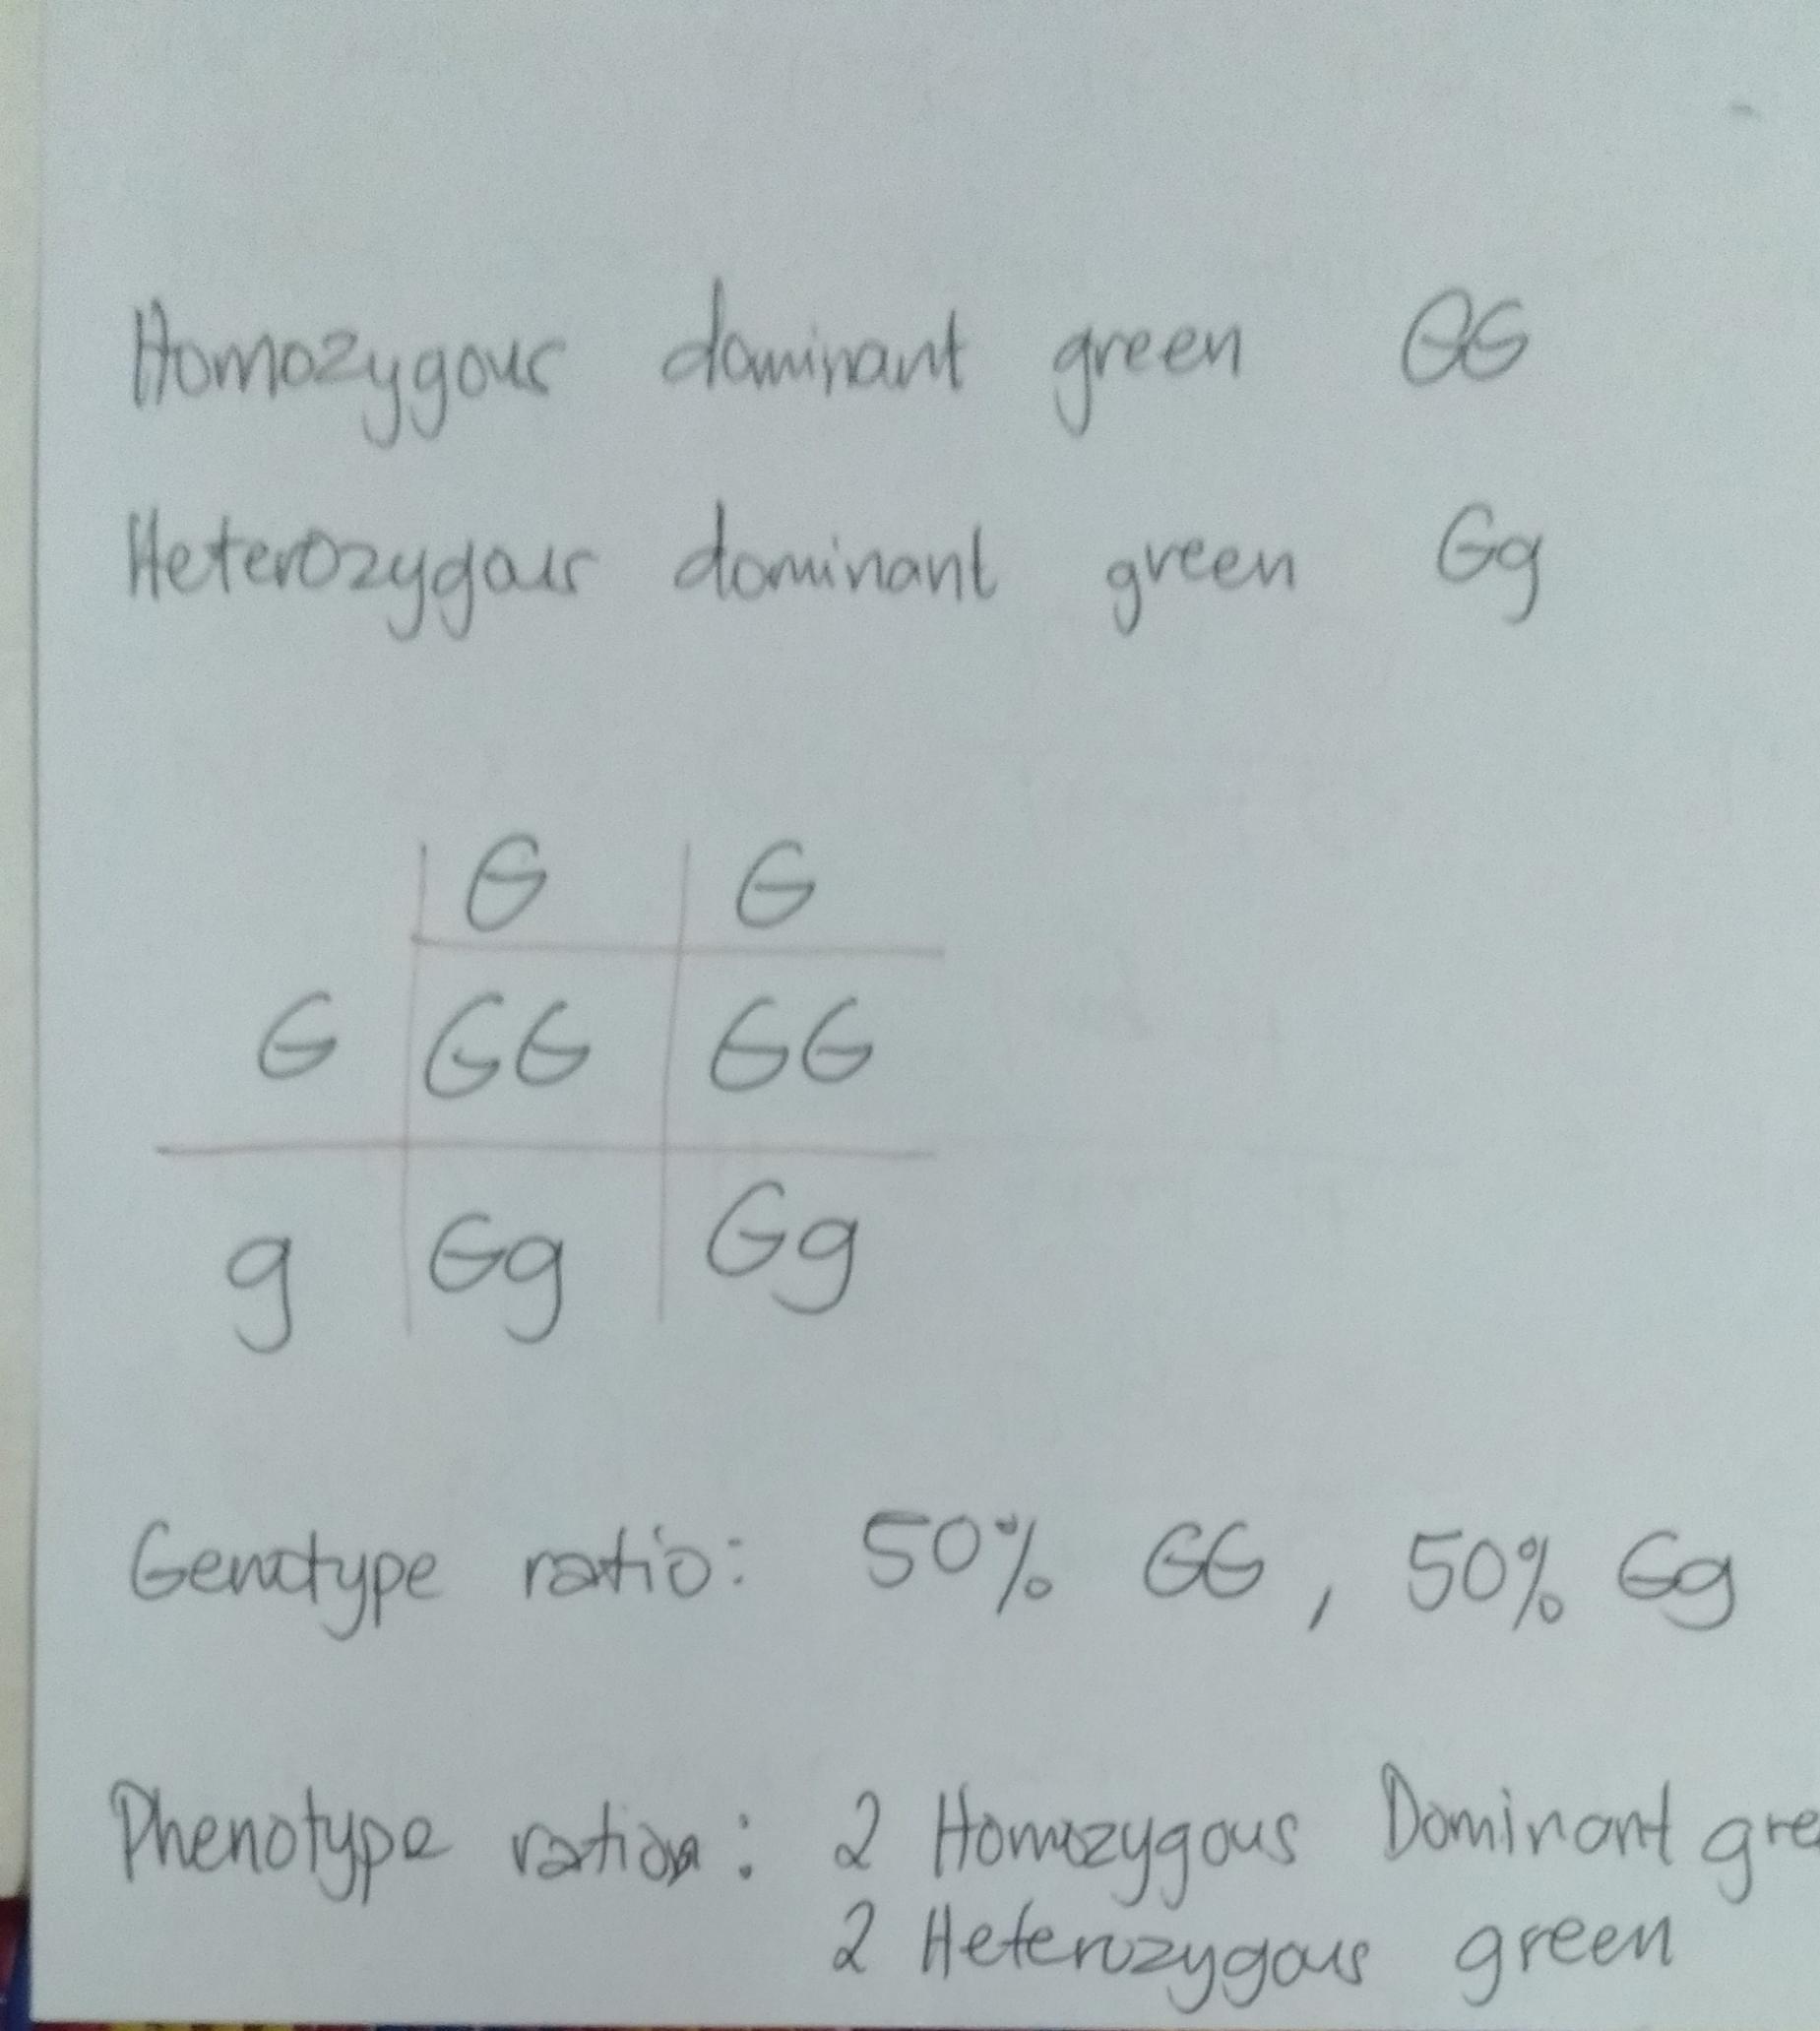 Homozygous dominant green GG
Heterozygous dominant green Gg
G G
G GG GG
g Gg Gg
Genotype ratio: 50% GG, 50% Gg
Phenotype ration: 2 Homozygous Dominant gre
2 Heterozygous green